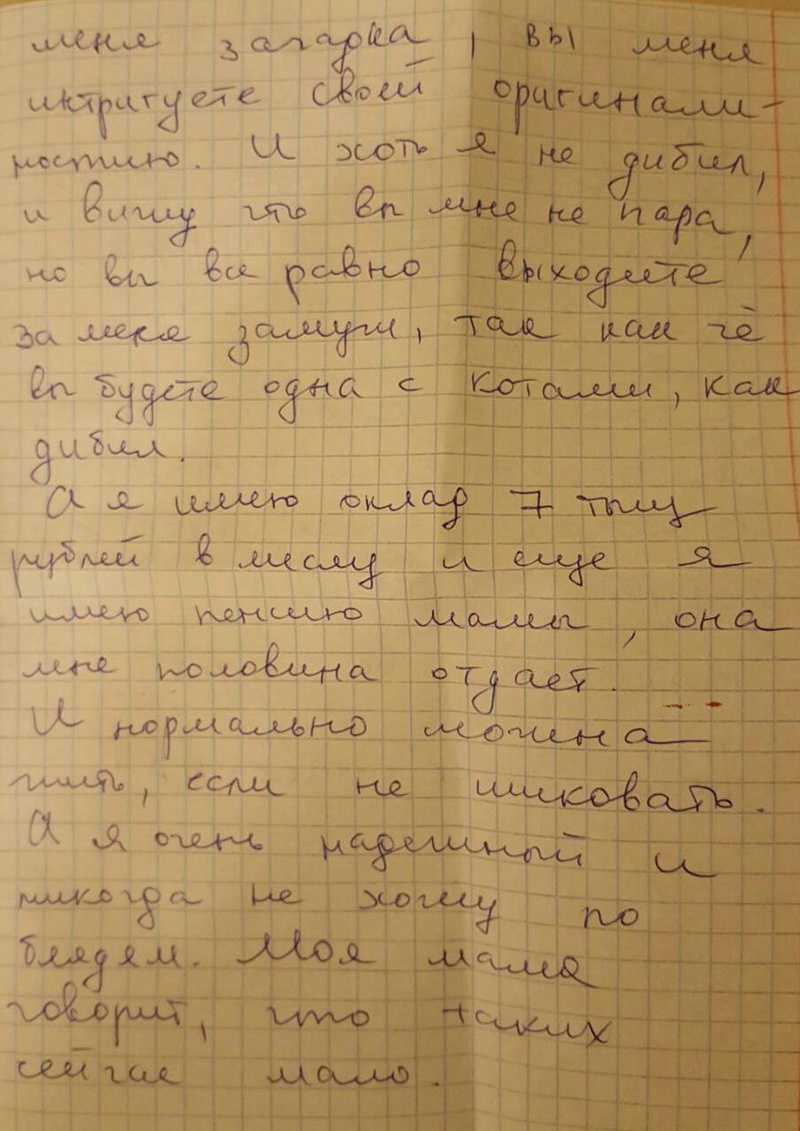 меня загадка, вы меня
интригуете своей оригинали-
ностию. И хоть я не дибил,
и вижу что вы мне не пара,
но вы все равно выходите
за меня замуш, так как чё
вы будете одна с котами, как
дибил.
А я имею оклад 7 тыщ
рублей в месяц и еще я
имею пенсию мамы, она
мне половина отдает.
И нормально можна
жить, если не шиковать.
А я очень надежный и
никогда не хожу по
блядям. Моя мама
говорит, что таких
сейчас мало.